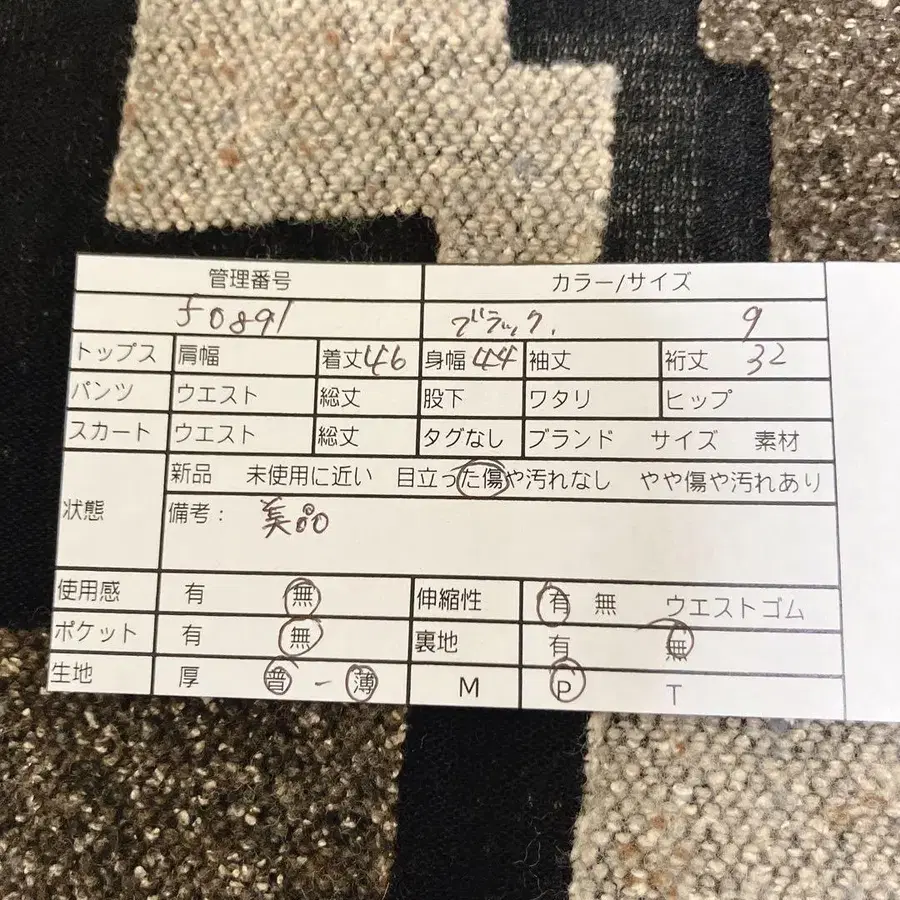 管理番号 カラー/サイズ
50891 ブラック. 9
トップス 肩幅 着丈46 身幅44 袖丈 裄丈 32
パンツ ウエスト 総丈 股下 ワタリ ヒップ
スカート ウエスト 総丈 タグなし ブランド サイズ 素材
状態 新品 未使用に近い 目立った傷や汚れなし やや傷や汚れあり
備考： 美品
使用感 有 無 伸縮性 有 無 ウエストゴム
ポケット 有 無 裏地 有 無
生地 厚 普 - 薄 M P T